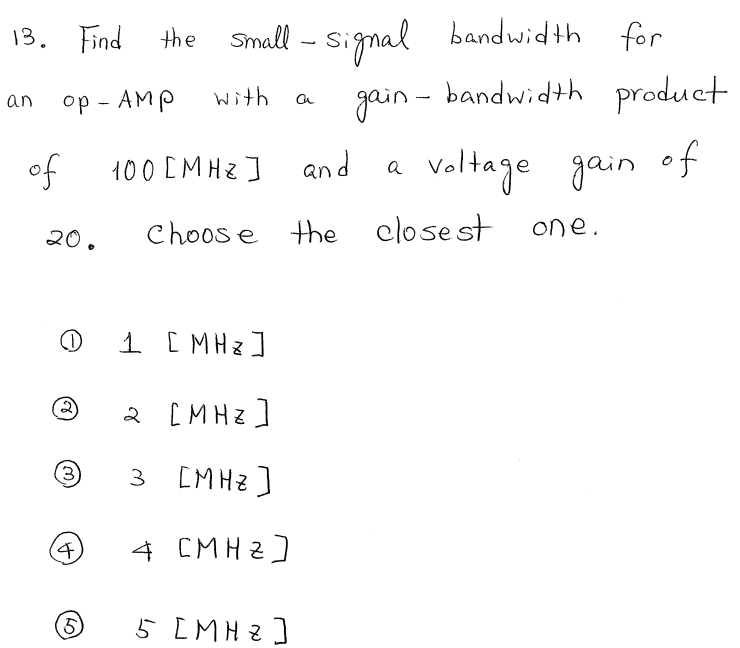 13. Find the small-signal bandwidth for
an op-AMP with a gain-bandwidth product
of 100 [MHz] and a voltage gain of
20. Choose the closest one.
① 1 [MHz]
② 2 [MHz]
③ 3 [MHz]
④ 4 [MHz]
⑤ 5 [MHz]